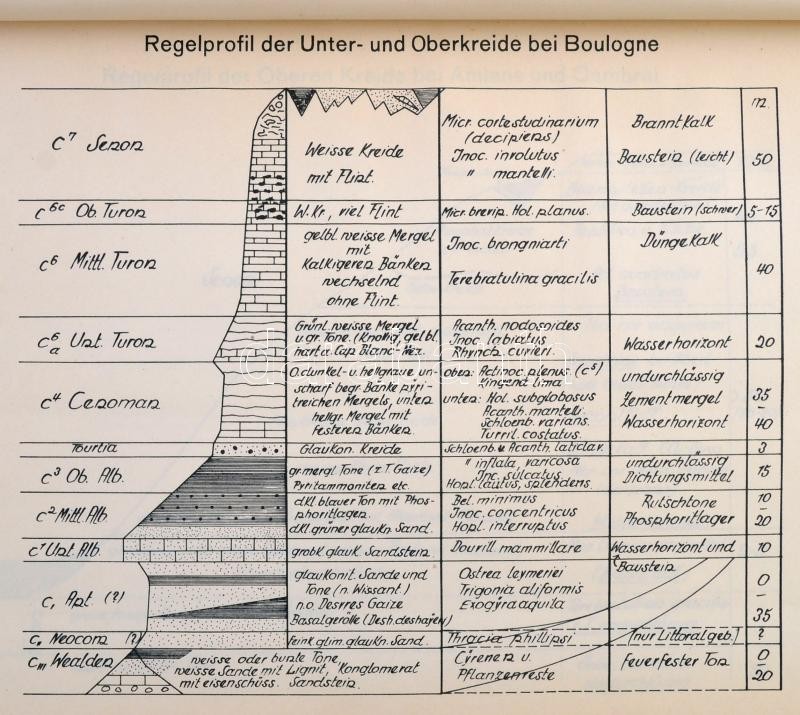 Regelprofil der Unter- und Oberkreide bei Boulogne
m.
c⁷ Senon
Weisse Kreide
mit Flint.
Micr. cortestudinarium
(decipiens)
Inoc. involutus
" mantelli.
Branntkalk
Baustein (leicht)
50
c⁶ᶜ Ob. Turon
W. Kr., viel Flint
Micr. brevip. Hol. planus.
Baustein (schwer)
5-15
c⁶ Mittl. Turon
gelbl. weisse Mergel
mit
Kalkigeren Bänken
wechselnd
ohne Flint.
Inoc. brongniarti
Terebratulina gracilis
Düngekalk
40
c⁶ₐ Unt. Turon
Grünl. weisse Mergel
u. gr. Tone. (Knollig, gelbl.
harter Cap Blanc-Nez.
Acanth. nodosoides
Inoc. labiatus
Rhynch. cuvieri.
Wasserhorizont
20
c⁴ Cenoman
O. dunkel- u. hellgraue un-
scharf begr. Bänke pyri-
treichen Mergels, unten
hellgr. Mergel mit
festeren Bänken.
oben: Actinoc. plenus. (c⁵)
Kingena lima
unten: Hol. subglobosus
Acanth. mantelli
Schloenb. varians.
Turril. costatus.
undurchlässig
Zementmergel
Wasserhorizont
35
–
40
Tourtia
Glaukon. Kreide
Schloenb. u. Acanth. laticlav.
3
c³ Ob. Alb.
gr. mergl. Tone (z. T. Gaize)
Pyritammoniten etc.
" inflata, varicosa
Inc. sulcatus
Hopl. lautus, splendens.
undurchlässig
Dichtungsmittel
15
c² Mittl. Alb.
dkl. blauer Ton mit Phos-
phoritlagen.
dkl. grüner glaukn. Sand.
Bel. minimus
Inoc. concentricus
Hopl. interruptus
Rutschtone
Phosphoritlager
10
–
20
c¹ Unt. Alb.
grobk. glauk. Sandstein
Douvill. mammillare
Wasserhorizont und
Baustein
10
c, Apt. (?)
glaukonit. Sande und
Tone (n. Wissant)
n. o Desvres Gaize
Basalgerölle (Desh. deshayesi)
Ostrea leymeriei
Trigonia aliformis
Exogyra aquila
0
–
35
c,, Neocom (?)
feink. glim. glaukn. Sand.
Thracia phillipsi
(nur Littoral geb.)
?
c,,, Wealden
weisse oder bunte Tone,
weisse Sande mit Lignit, Konglomerat
mit eisenschüss. Sandstein.
Cyrenen u.
Pflanzenreste
feuerfester Ton
0
–
20
darabanth.com